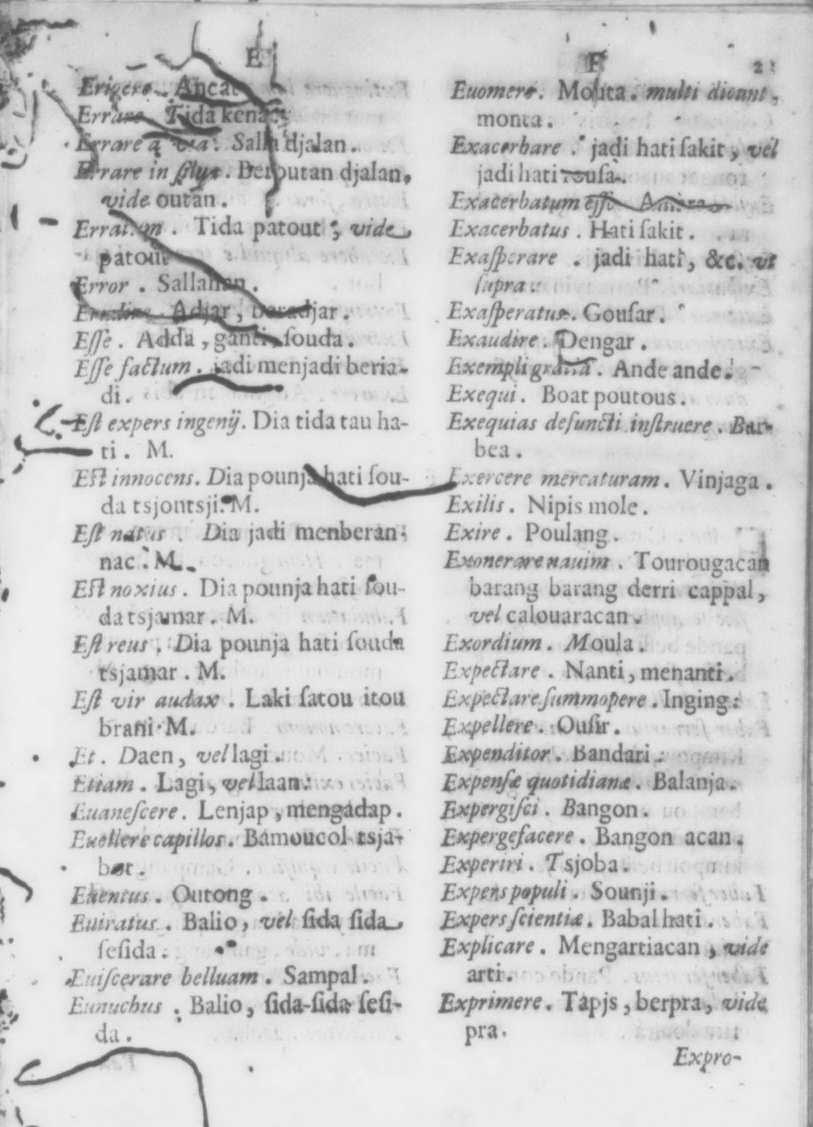 E
Erigere. Ancat
Errare. Tida kena.
Errare a via. Salla djalan.
Errare in sylva. Beroutan djalan,
vide outan.
Tida patout, vide
patout
Error. Sallahan.
Adjar, beradjar.
Eſſe. Adda, ganti, ſouda.
Eſſe factum. jadi menjadi beria-
di.
Eſt expers ingenij. Dia tida tau ha-
ti. M.
Eſt innocens. Dia pounja hati ſou-
da tsjontsji. M.
Eſt natus. Dia jadi menberan-
nac. M.
Eſt noxius. Dia pounja hati ſou-
da tsjamar. M.
Eſt reus. Dia pounja hati ſouda
tsjamar. M.
Eſt vir audax. Laki ſatou itou
brani. M.
Et. Daen, vel lagi.
Etiam. Lagi, vel laan.
Euaneſcere. Lenjap, mengadap.
Euellere capillos. Bamoucol tsja-
bot.
Euentus. Outong.
Euiratus. Balio, vel ſida ſida
ſeſida.
Euiſcerare belluam. Sampal.
Eunuchus. Balio, ſida-ſida ſeſi-
da.
21
Euomere. Mouta. multi dicunt,
monta.
Exacerbare. jadi hati ſakit, vel
jadi hati rouſa.
Exacerbatum eſſe.
Exacerbatus. Hati ſakit.
Exaſperare. jadi hati, &c. vt
ſupra.
Exaſperatus. Gouſar.
Exaudire. Dengar.
Exempli gratia. Ande ande.
Exequi. Boat poutous.
Exequias defuncti inſtruere. Bar-
bea.
Exercere mercaturam. Vinjaga.
Exilis. Nipis mole.
Exire. Poulang.
Exonerare nauim. Tourougacan
barang barang derri cappal,
vel calouaracan.
Exordium. Moula.
Expectare. Nanti, menanti.
Expectare ſummopere. Inging.
Expellere. Ouſir.
Expenditor. Bandari.
Expenſæ quotidianæ. Balanja.
Expergiſci. Bangon.
Expergefacere. Bangon acan.
Experiri. Tsjoba.
Expens populi. Sounji.
Expers ſcientiæ. Babal hati.
Explicare. Mengartiacan, vide
arti.
Exprimere. Tapjs, berpra, vide
pra.
Expro-